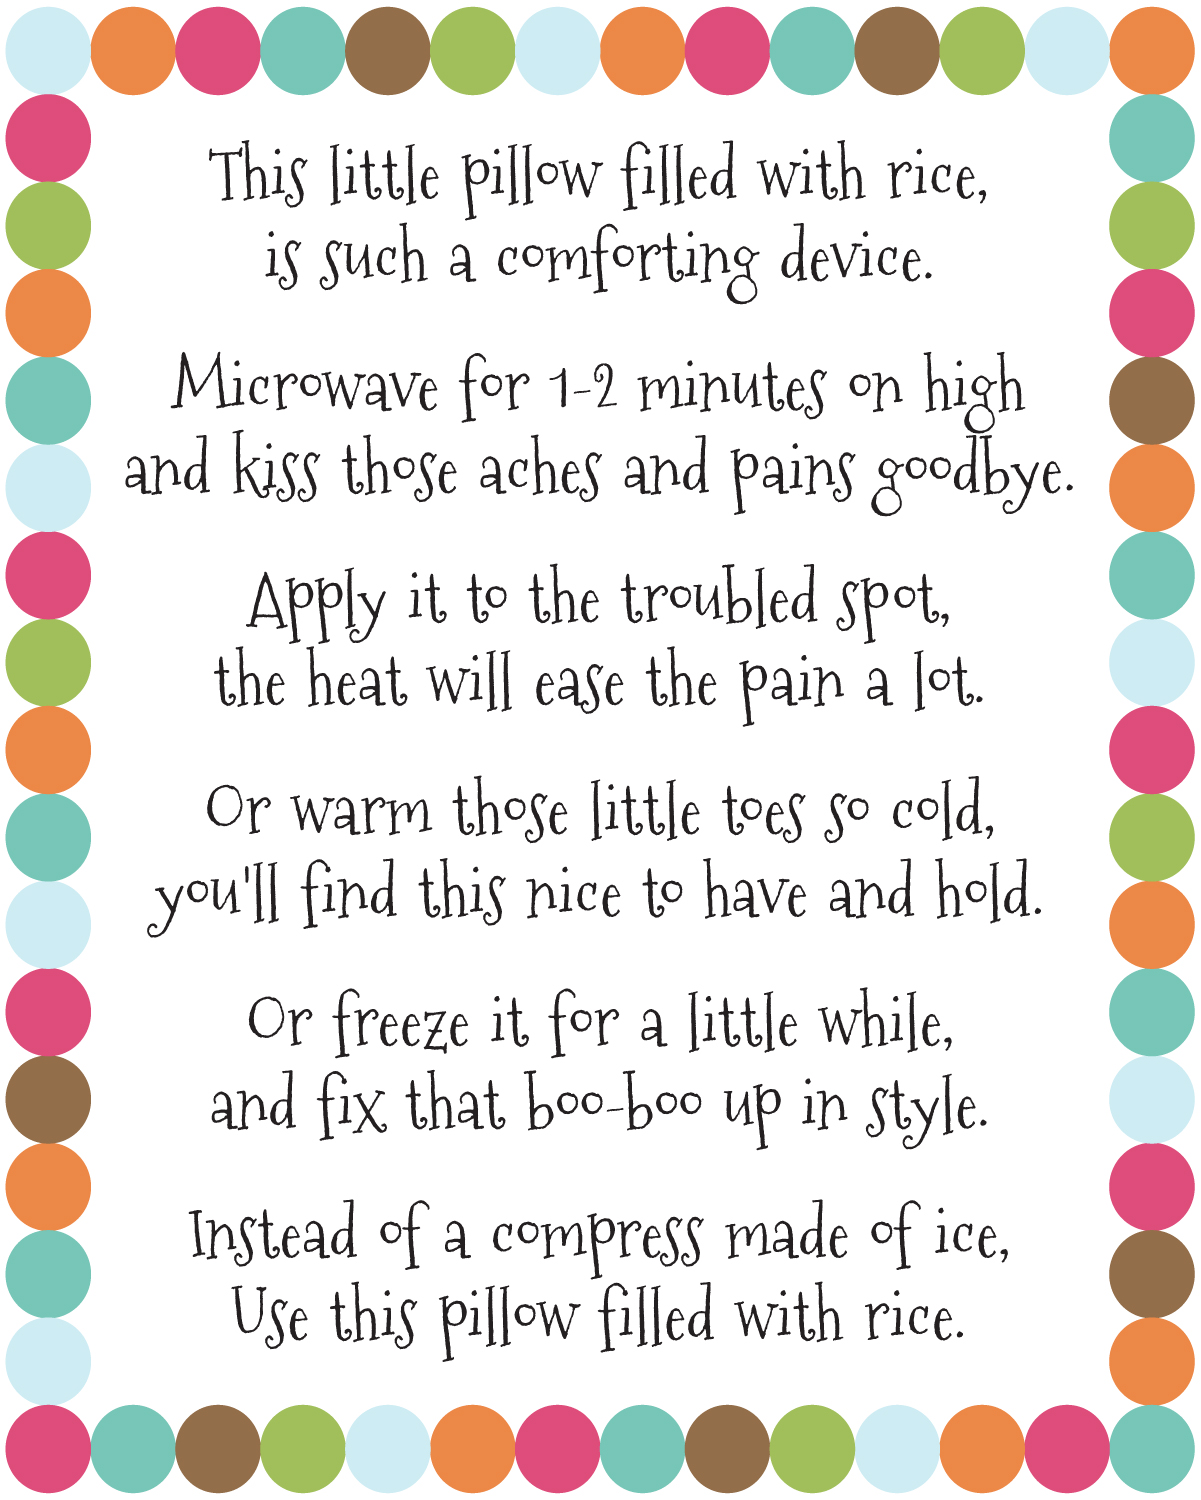 This little pillow filled with rice,
is such a comforting device.
Microwave for 1-2 minutes on high
and kiss those aches and pains goodbye.
Apply it to the troubled spot,
the heat will ease the pain a lot.
Or warm those little toes so cold,
you'll find this nice to have and hold.
Or freeze it for a little while,
and fix that boo-boo up in style.
Instead of a compress made of ice,
Use this pillow filled with rice.